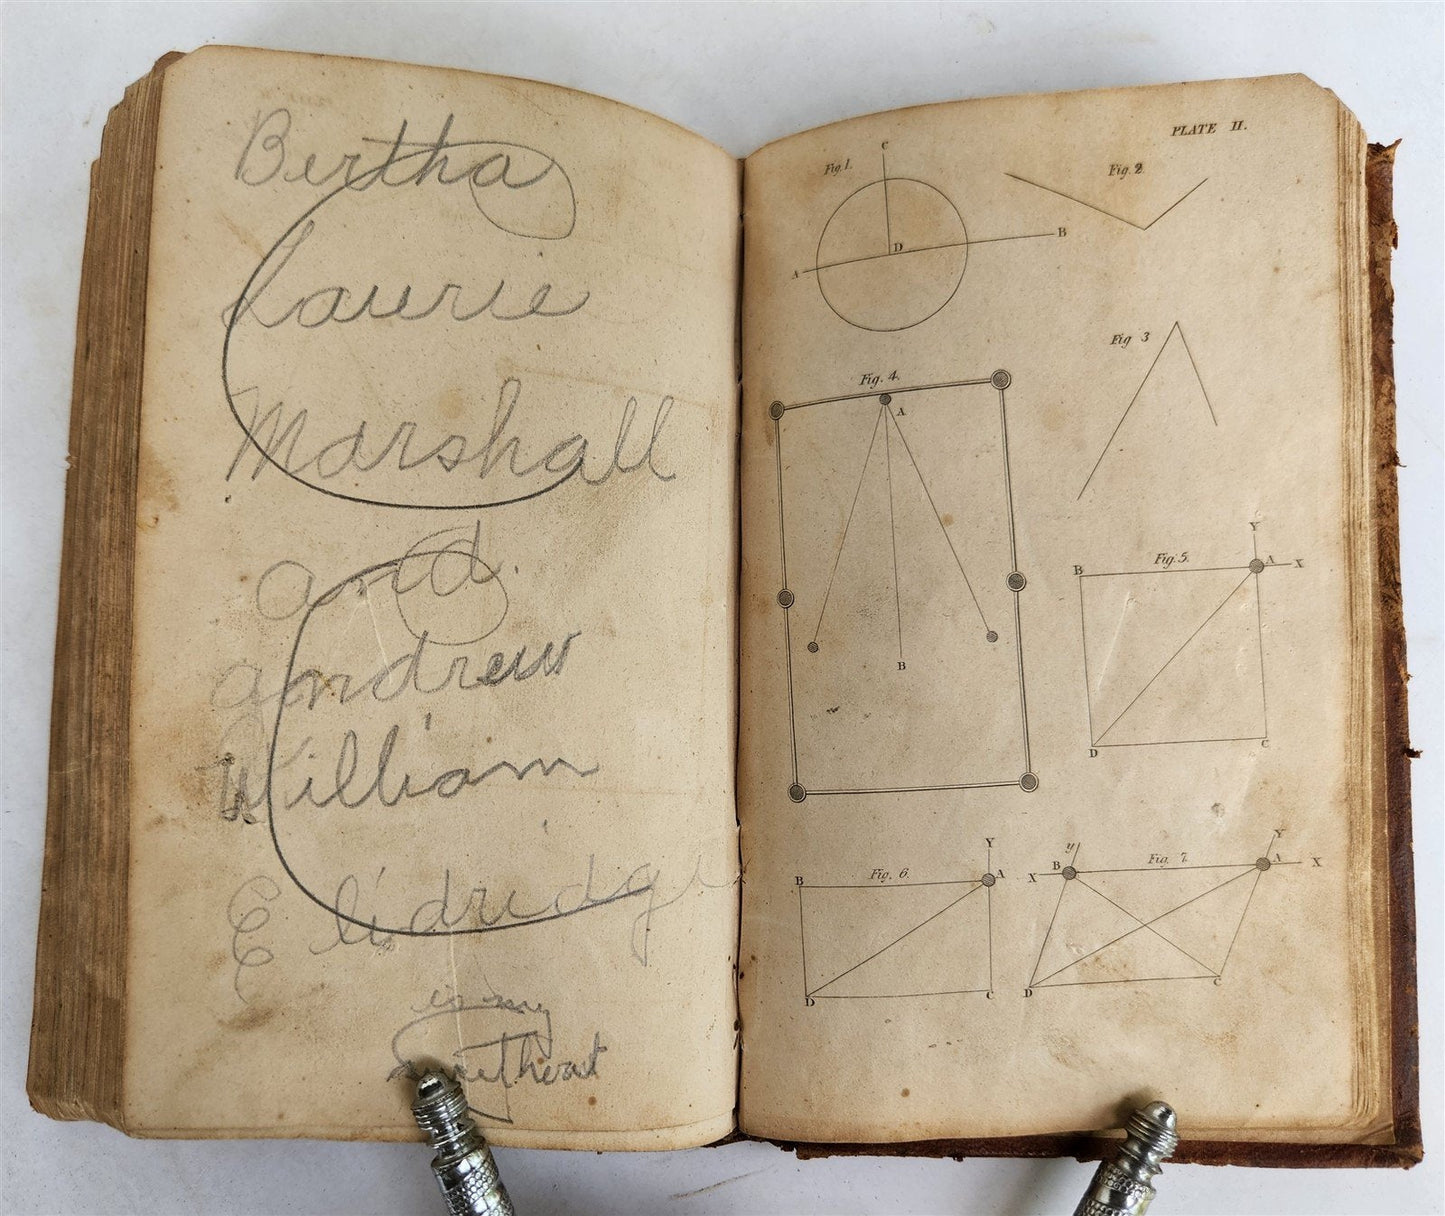 Bertha
Laurie
Marshall
and
Andrew
William
Elidridge
is my
sweetheart
PLATE II.
Fig. 1.
C
D
A
B
Fig. 2
Fig 3
Fig. 4.
A
B
Fig. 5.
Y
B
A
X
D
C
Fig. 6.
Y
B
A
D
C
Fig. 7.
y
Y
B
A
X
X
D
C